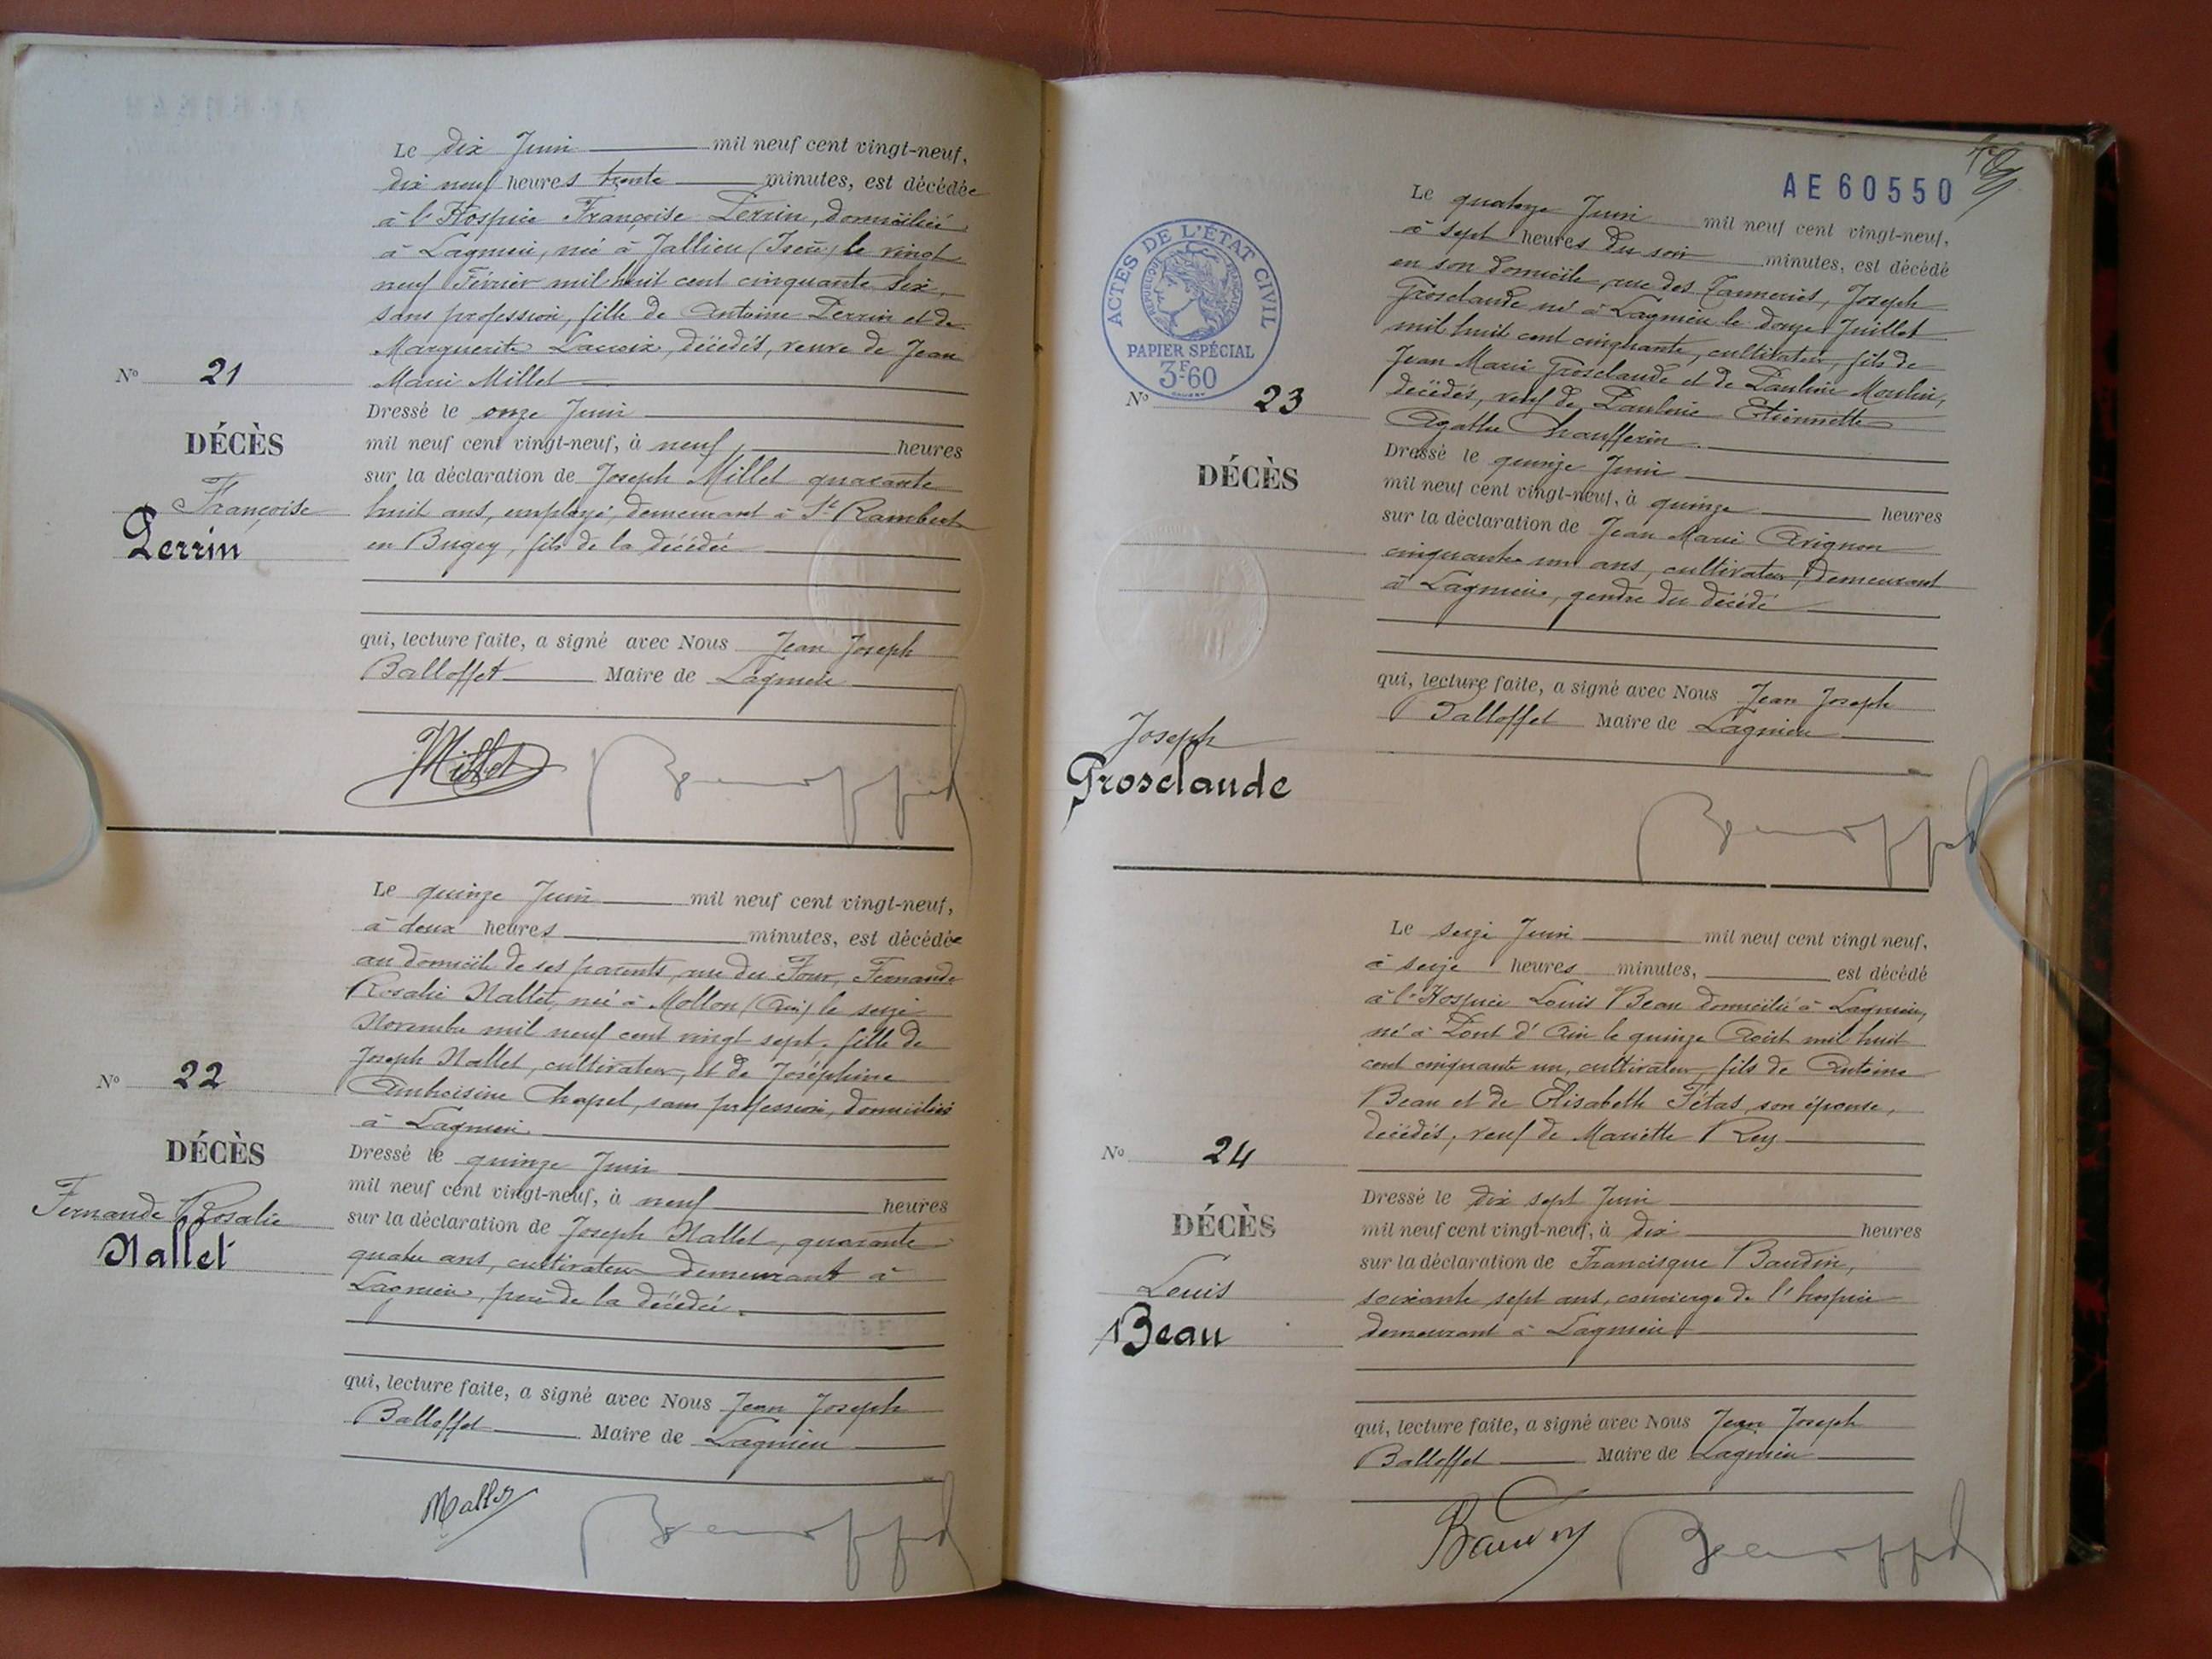 Le dix Juin mil neuf cent vingt-neuf,
dix neuf heures trente minutes, est décédée
à l'Hospice Françoise Perrin, domiciliée
à Lagnieu, née à Jallieu (Isère) le vingt
neuf Février mil huit cent cinquante six,
sans profession, fille de Antoine Perrin et de
Marguerite Lacroix, décédés, veuve de Jean
Marie Millet
N° 21
DÉCÈS
Françoise
Perrin
Dressé le onze Juin
mil neuf cent vingt-neuf, à neuf heures
sur la déclaration de Joseph Millet quarante
huit ans, employé, demeurant à St Rambert
en Bugey, fils de la décédée
qui, lecture faite, a signé avec Nous Jean Joseph
Balloffet Maire de Lagnieu
Millet
Le quinze Juin mil neuf cent vingt-neuf,
à deux heures minutes, est décédée
au domicile de ses parents, rue du Four, Fernande
Rosalie Nallet, née à Mollon (Ain) le seize
Novembre mil neuf cent vingt sept, fille de
Joseph Nallet, cultivateur, et de Joséphine
Ambroisine Chapel, sans profession, domiciliés
à Lagnieu
N° 22
DÉCÈS
Fernande Rosalie
Nallet
Dressé le quinze Juin
mil neuf cent vingt-neuf, à neuf heures
sur la déclaration de Joseph Nallet, quarante
quatre ans, cultivateur demeurant à
Lagnieu, père de la décédée.
qui, lecture faite, a signé avec Nous Jean Joseph
Balloffet Maire de Lagnieu
Nallet
AE 60550
ACTES DE L'ÉTAT CIVIL
RÉPUBLIQUE FRANÇAISE
PAPIER SPÉCIAL
3F60
Le quatorze Juin mil neuf cent vingt-neuf,
à sept heures du soir minutes, est décédé
en son domicile, rue des Tanneries, Joseph
Grosclaude né à Lagnieu le douze Juillet
mil huit cent cinquante, cultivateur, fils de
Jean Marie Grosclaude et de Pauline Moulin,
décédés, veuf de Pauline Etiennette
Agathe Chaufferin
N° 23
DÉCÈS
Joseph
Grosclaude
Dressé le quinze Juin
mil neuf cent vingt-neuf, à quinze heures
sur la déclaration de Jean Marie Avignon
cinquante un ans, cultivateur, demeurant
à Lagnieu, gendre du décédé
qui, lecture faite, a signé avec Nous Jean Joseph
Balloffet Maire de Lagnieu
Le seize Juin mil neuf cent vingt neuf,
à seize heures minutes, est décédé
à l'Hospice Louis Beau domicilié à Lagnieu,
né à Pont d'Ain le quinze Août mil huit
cent cinquante un, cultivateur, fils de Antoine
Beau et de Elisabeth Tétas, son épouse,
décédés, veuf de Mariette Rey
N° 24
DÉCÈS
Louis
Beau
Dressé le dix sept Juin
mil neuf cent vingt-neuf, à dix heures
sur la déclaration de Francisque Baudin,
soixante sept ans, concierge de l'hospice
demeurant à Lagnieu
qui, lecture faite, a signé avec Nous Jean Joseph
Balloffet Maire de Lagnieu
Baudin